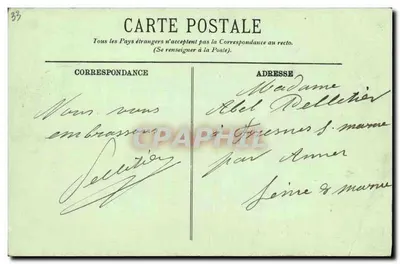 33
CARTE POSTALE
Tous les Pays étrangers n'acceptent pas la Correspondance au recto.
(Se renseigner à la Poste).
CORRESPONDANCE
ADRESSE
Nous vous
embrassons
Pelletier
Madame
Abel Pelletier
à Fresnes s. marne
par Annet
Seine & marne
CPARAMA